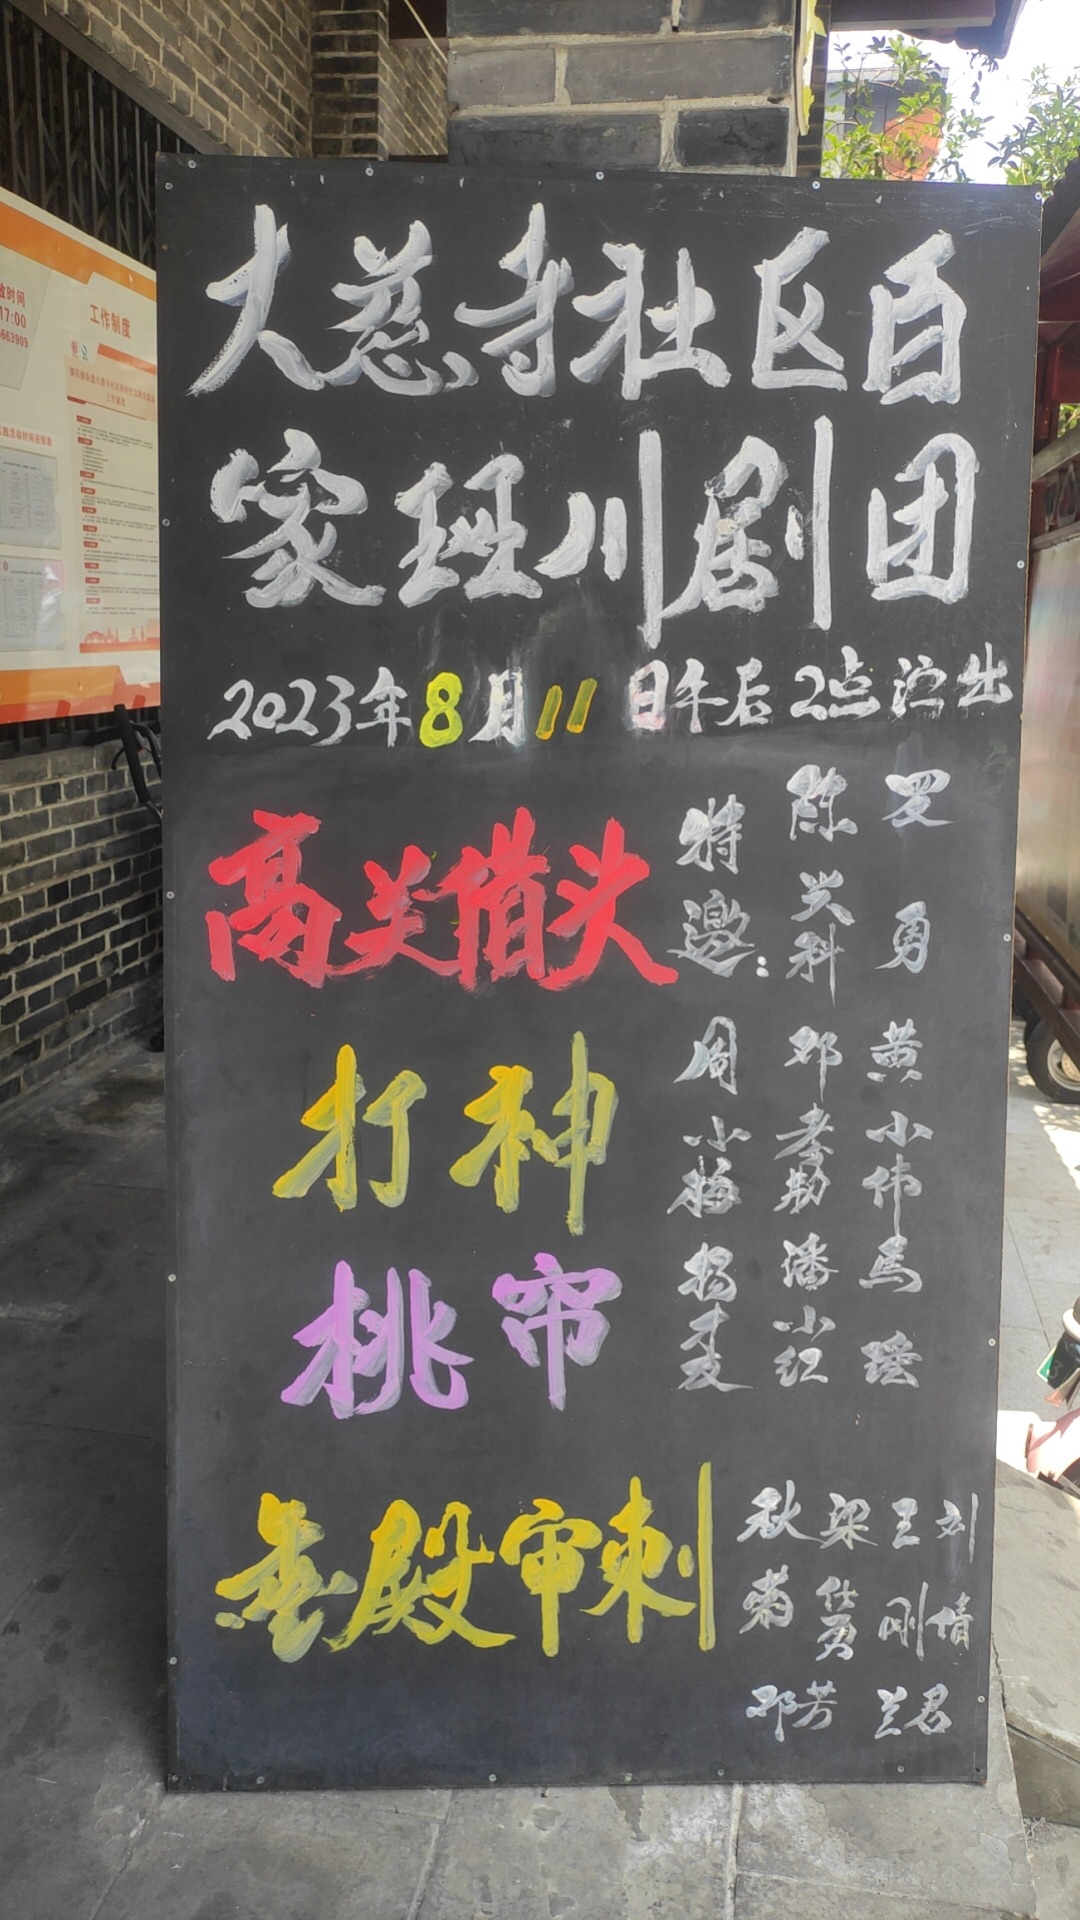 大慈寺社区百
家班川剧团
2023年8月11日午后2点演出
高关借头
打神
桃帘
金殿审刺
罗勇
陈兴科
特邀:
黄小伟
邓孝勤
周小梅
马瑶
潘小红
杨麦
刘倩
王刚
梁仕勇
秋菊
兰君
邓芳
工作制度
放时间
17:00
663909